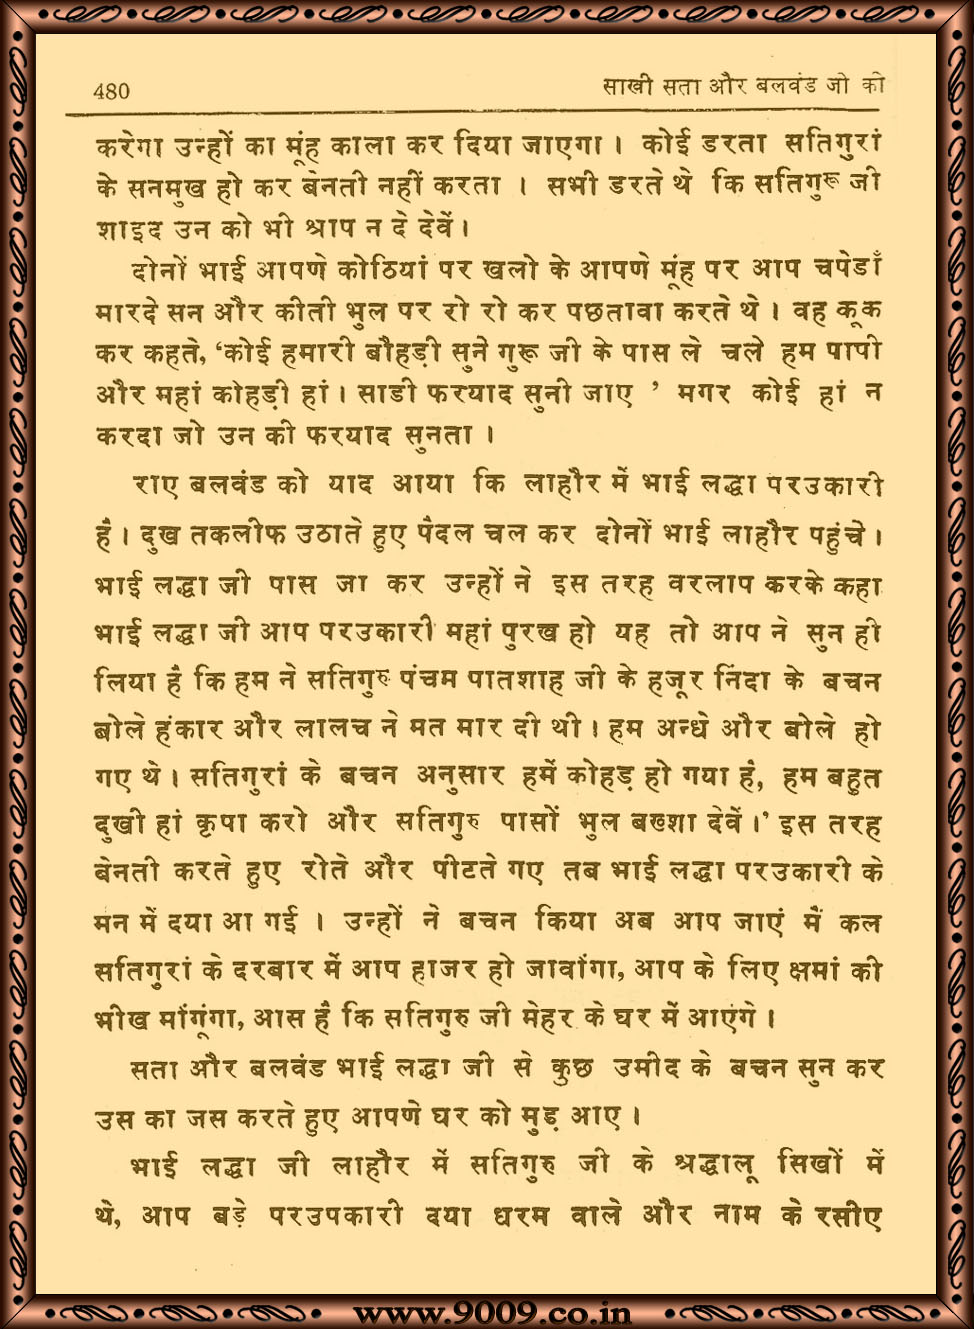 480
साखी सता और बलवंड जी की
करेगा उन्हों का मूंह काला कर दिया जाएगा । कोई डरता सतिगुरां
के सनमुख हो कर बेनती नहीं करता । सभी डरते थे कि सतिगुरू जी
शाइद उन को भी श्राप न दे देवें ।
दोनों भाई आपणे कोठियां पर खलो के आपणे मूंह पर आप चपेडाँ
मारदे सन और कीती भुल पर रो रो कर पछतावा करते थे । वह कूक
कर कहते, ‘कोई हमारी बौहड़ी सुने गुरू जी के पास ले चले हम पापी
और महां कोहड़ी हां । साडी फरयाद सुनी जाए ’ मगर कोई हां न
करदा जो उन की फरयाद सुनता ।
राए बलवंड को याद आया कि लाहौर में भाई लद्धा परउकारी
है । दुख तकलीफ उठाते हुए पैदल चल कर दोनों भाई लाहौर पहुंचे ।
भाई लद्धा जी पास जा कर उन्हों ने इस तरह वरलाप करके कहा
भाई लद्धा जी आप परउकारी महां पुरख हो यह तो आप ने सुन ही
लिया है कि हम ने सतिगुरु पंचम पातशाह जी के हजूर निंदा के बचन
बोले हंकार और लालच ने मत मार दी थी । हम अन्धे और बोले हो
गए थे । सतिगुरां के बचन अनुसार हमें कोहड़ हो गया है, हम बहुत
दुखी हां कृपा करो और सतिगुरु पासों भुल बख्शा देवें ।’ इस तरह
बेनती करते हुए रोते और पीटते गए तब भाई लद्धा परउकारी के
मन में दया आ गई । उन्हों ने बचन किया अब आप जाएं मैं कल
सतिगुरां के दरबार में आप हाजर हो जावांगा, आप के लिए क्षमां की
भीख मांगूंगा, आस है कि सतिगुरु जी मेहर के घर में आएंगे ।
सता और बलवंड भाई लद्धा जी से कुछ उमीद के बचन सुन कर
उस का जस करते हुए आपणे घर को मुड़ आए ।
भाई लद्धा जी लाहौर में सतिगुरु जी के श्रद्धालू सिखों में
थे, आप बड़े परउपकारी दया धरम वाले और नाम के रसीए
www.9009.co.in